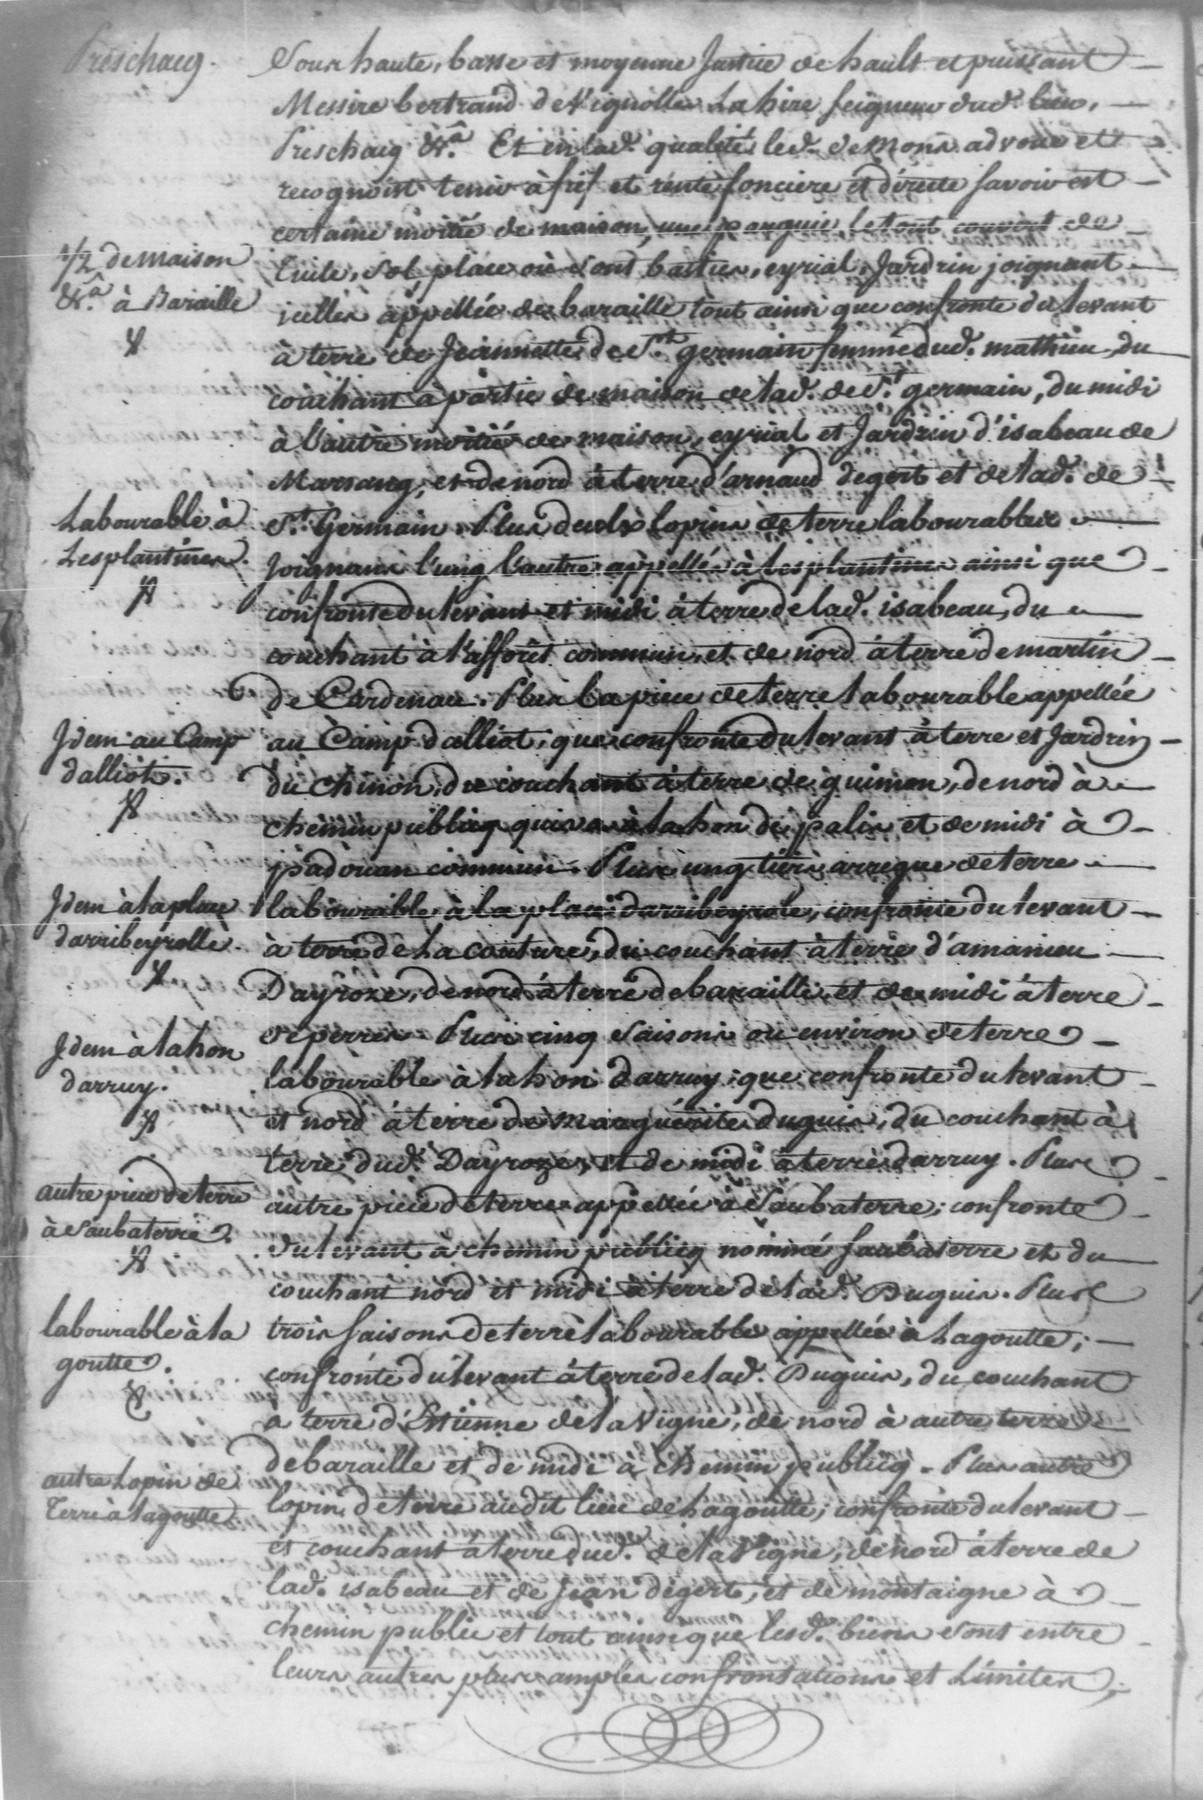 Preschacq.
Sous haute, basse et moyenne Justice de hault et puissant
Messire bertrand de Vignolles Lahire seigneur dud. lieu,
Preschacq &ca. Et en lad. qualité led. de Mons advoue et
recognoist tenir à fief et rente fonciere et directe savoir est
certaine moitié de maison, une parguie le tout couvert de
1/2 de maison
&ca. à Baraille
tuile, sol place où sont basties, eyrial, Jardrin joignant
icelles appellée de baraille tout ainsi que confronte du levant
à terre de Jeannette de St. germain femme dud. mathieu, du
couchant à partie de maison de lad. de St. germain, du midi
à l'autre moitié de maison, eyrial et Jardrin d'isabeau de
Marsacq, et de nord à terre d'arnaud degert et de lad. de
Labourable à
Lesplantines.
St. Germain. Plus deulx lopins de terre labourables
Joignans l'ung l'autre appellés à lesplantines ainsi que
confronte du levant et midi à terre de lad. isabeau, du
couchant à l'afforêt commun, et de nord à terre de martin
de Cardenau. Plus la piece de terre labourable appellée
Idem au Camp
dalliot.
au Camp dalliot, que confronte du levant à terre et Jardrin
du Chinon, du couchant à terre de guimon, de nord à
chemin publicq qui va à la hon de palis et de midi à
padouan commun. Plus ung tiers arregue de terre
Idem à la place
darribeyrolle.
labourable à la place darribeyrole, confronte du levant
à terre de la couture, du couchant à terre d'amanieu
Dayroze, de nord à terre de baraille, et de midi à terre
de perres. Plus cinq saisons ou environ de terre
Idem à la hon
darruy.
labourable à la hon darruy, que confronte du levant
et nord à terre de Marguerite duguis, du couchant à
terre dud. Dayroze, et de midi à terre darruy. Plus
autre piece de terre
à Saubaterre.
autre piece de terre appellée à Saubaterre; confronte
du levant à chemin publicq nommé saubaterre et du
couchant nord et midi à terre de lad. Duguis. Plus
labourable à la
goutte.
trois saisons de terre labourable appellée à Lagoutte;
confronte du levant à terre de lad. Duguis, du couchant
a terre d'Estienne de la Vigne, de nord à autre terre
de baraille et de midi à chemin publicq. Plus autre
autre Lopin de
Terre à lagoutte
lopin de terre audit lieu de Lagoutte; confronte du levant
et couchant à terre dud. de la Vigne, de nord à terre de
lad. isabeau et de jean degert, et de montaigne à
chemin public et tout ainsi que lesd. biens sont entre
leurs autres plus amples confrontations et Limites;